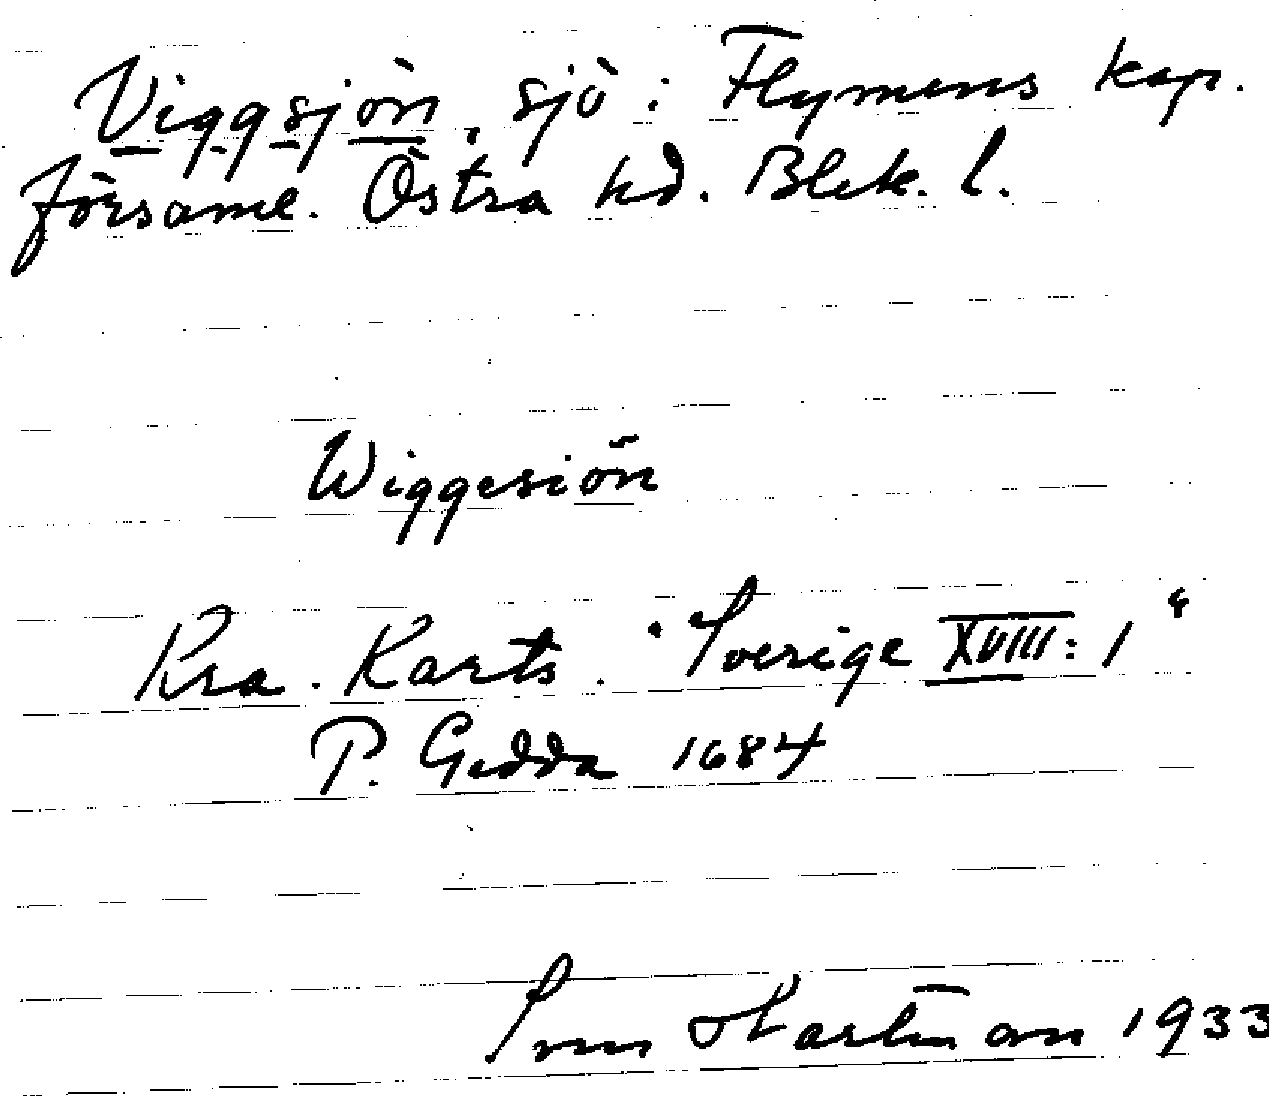 Viggsjön, sjö i Flymens kap.
församl. Östra hd. Blek. l.
Wiggesiön
Kra. Karts. "Sverige XVIII: 1"
P. Gedda 1684
Hartman 1933